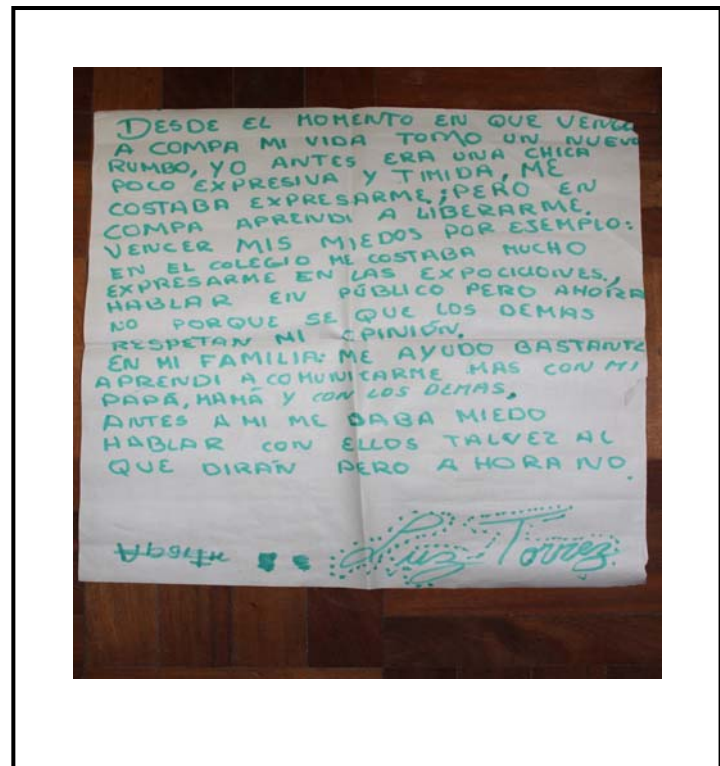 DESDE EL MOMENTO EN QUE VENGO
A COMPA MI VIDA TOMO UN NUEVO
RUMBO, YO ANTES ERA UNA CHICA
POCO EXPRESIVA Y TIMIDA, ME
COSTABA EXPRESARME; PERO EN
COMPA APRENDI A LIBERARME.
VENCER MIS MIEDOS POR EJEMPLO:
EN EL COLEGIO ME COSTABA MUCHO
EXPRESARME EN LAS EXPOCICIOIVES,
HABLAR EN PÚBLICO PERO AHORA
NO PORQUE SE QUE LOS DEMAS
RESPETAN MI OPINIÓN.
EN MI FAMILIA: ME AYUDO BASTANTE
APRENDI A COMUNICARME MAS CON MI
PAPÁ, MAMÁ Y CON LOS DEMAS,
ANTES A MI ME DABA MIEDO
HABLAR CON ELLOS TALVEZ AL
QUE DIRÁN PERO AHORA NO.
Luz Torrez